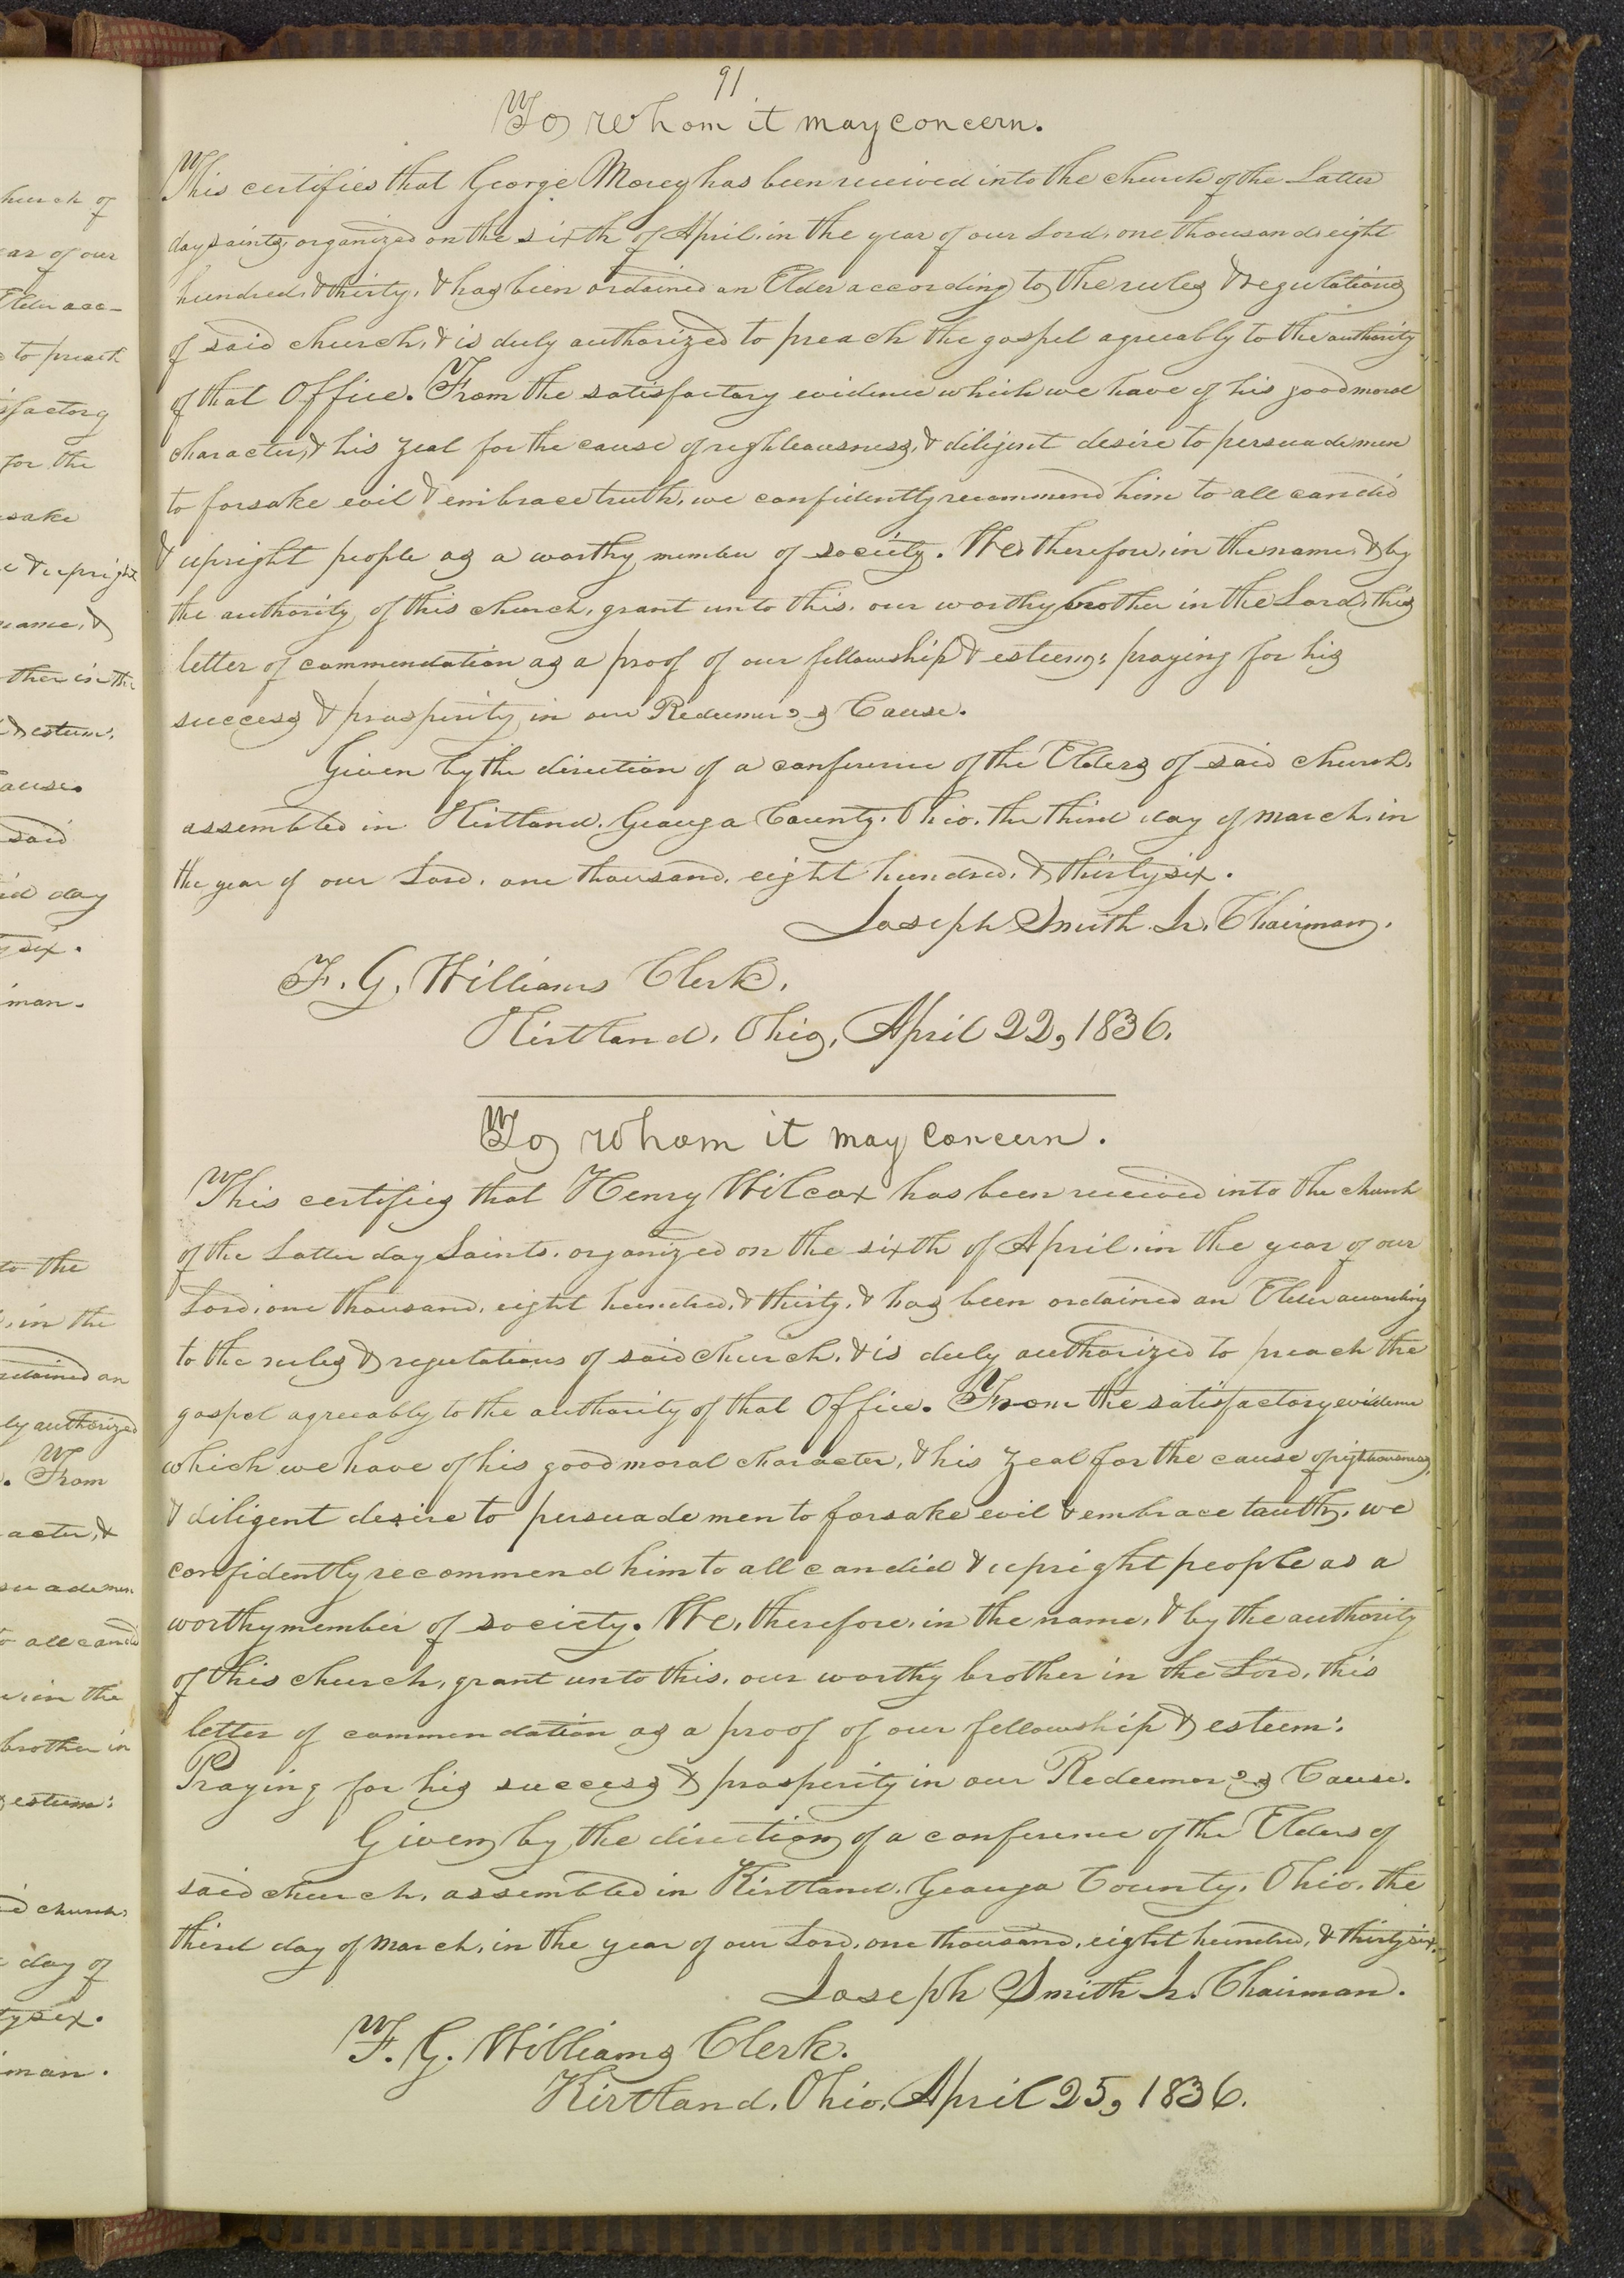 91
To whom it may concern.
This certifies that George Morey has been received into the church of the Latter
day saints, organized on the sixth of April, in the year of our Lord, one thousand, eight
hundred, & thirty, & has been ordained an Elder according to the rules & regulations
of said church, & is duly authorized to preach the gospel agreeably to the authority
of that Office. From the satisfactory evidence which we have of his good moral
character, & his zeal for the cause of righteousness, & diligent desire to persuade men
to forsake evil & embrace truth, we confidently recommend him to all candid
& upright people as a worthy member of society. We, therefore, in the name, & by
the authority of this church, grant unto this, our worthy brother in the Lord, this
letter of commendation as a proof of our fellowship & esteem: praying for his
success & prosperity in our Redeemer's Cause.
Given by the direction of a conference of the Elders of said church,
assembled in Kirtland, Geauga County, Ohio, the third day of march, in
the year of our Lord, one thousand, eight hundred, & thirty six.
Joseph Smith Jr. Chairman.
F. G. Williams Clerk.
Kirtland, Ohio, April 22, 1836.
To whom it may concern.
This certifies that Henry Wilcox has been received into the church
of the Latter day Saints, organized on the sixth of April, in the year of our
Lord, one thousand, eight hundred, & thirty, & has been ordained an Elder according
to the rules & regulations of said church, & is duly authorized to preach the
gospel agreeably to the authority of that Office. From the satisfactory evidence
which we have of his good moral character, & his zeal for the cause of righteousness,
& diligent desire to persuade men to forsake evil & embrace tauth, we
confidently recommend him to all candid & upright people as a
worthy member of society. We, therefore, in the name, & by the authority
of this church, grant unto this, our worthy brother in the Lord, this
letter of commendation as a proof of our fellowship & esteem:
Praying for his success & prosperity in our Redeemer's Cause.
Given by the direction of a conference of the Elders of
said church, assembled in Kirtland, Geauga County, Ohio, the
third day of march, in the year of our Lord, one thousand, eight hundred, & thirty six.
Joseph Smith Jr. Chairman.
F. G. Williams Clerk.
Kirtland, Ohio, April 25, 1836.